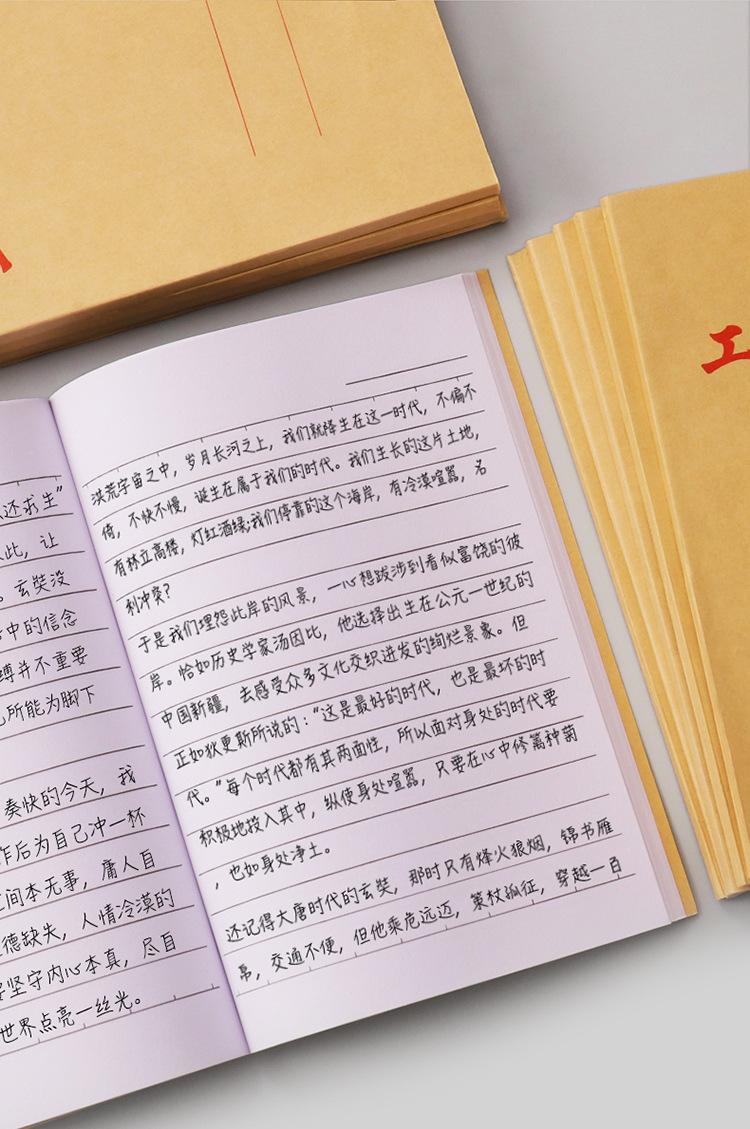 工
还求生”
此，让
。玄奘没
中的信念
缚并不重要
己所能为脚下
奏快的今天，我
作后为自己冲一杯
间本无事，庸人自
德缺失，人情冷漠的
坚守内心本真，尽自
世界点亮一丝光。
洪荒宇宙之中，岁月长河之上，我们就降生在这一时代，不偏不
倚，不快不慢，诞生在属于我们的时代。我们生长的这片土地，
有林立高楼，灯红酒绿;我们停靠的这个海岸，有冷漠喧嚣，名
利冲突?
于是我们埋怨此岸的风景，一心想跋涉到看似富饶的彼
岸。恰如历史学家汤因比，他选择出生在公元一世纪的
中国新疆，去感受众多文化交织迸发的绚烂景象。但
正如狄更斯所说的：“这是最好的时代，也是最坏的时
代。”每个时代都有其两面性，所以面对身处的时代要
积极地投入其中，纵使身处喧嚣，只要在心中修篱种菊
，也如身处净土。
还记得大唐时代的玄奘，那时只有烽火狼烟，锦书雁
帛，交通不便，但他乘危远迈，策杖孤征，穿越一百